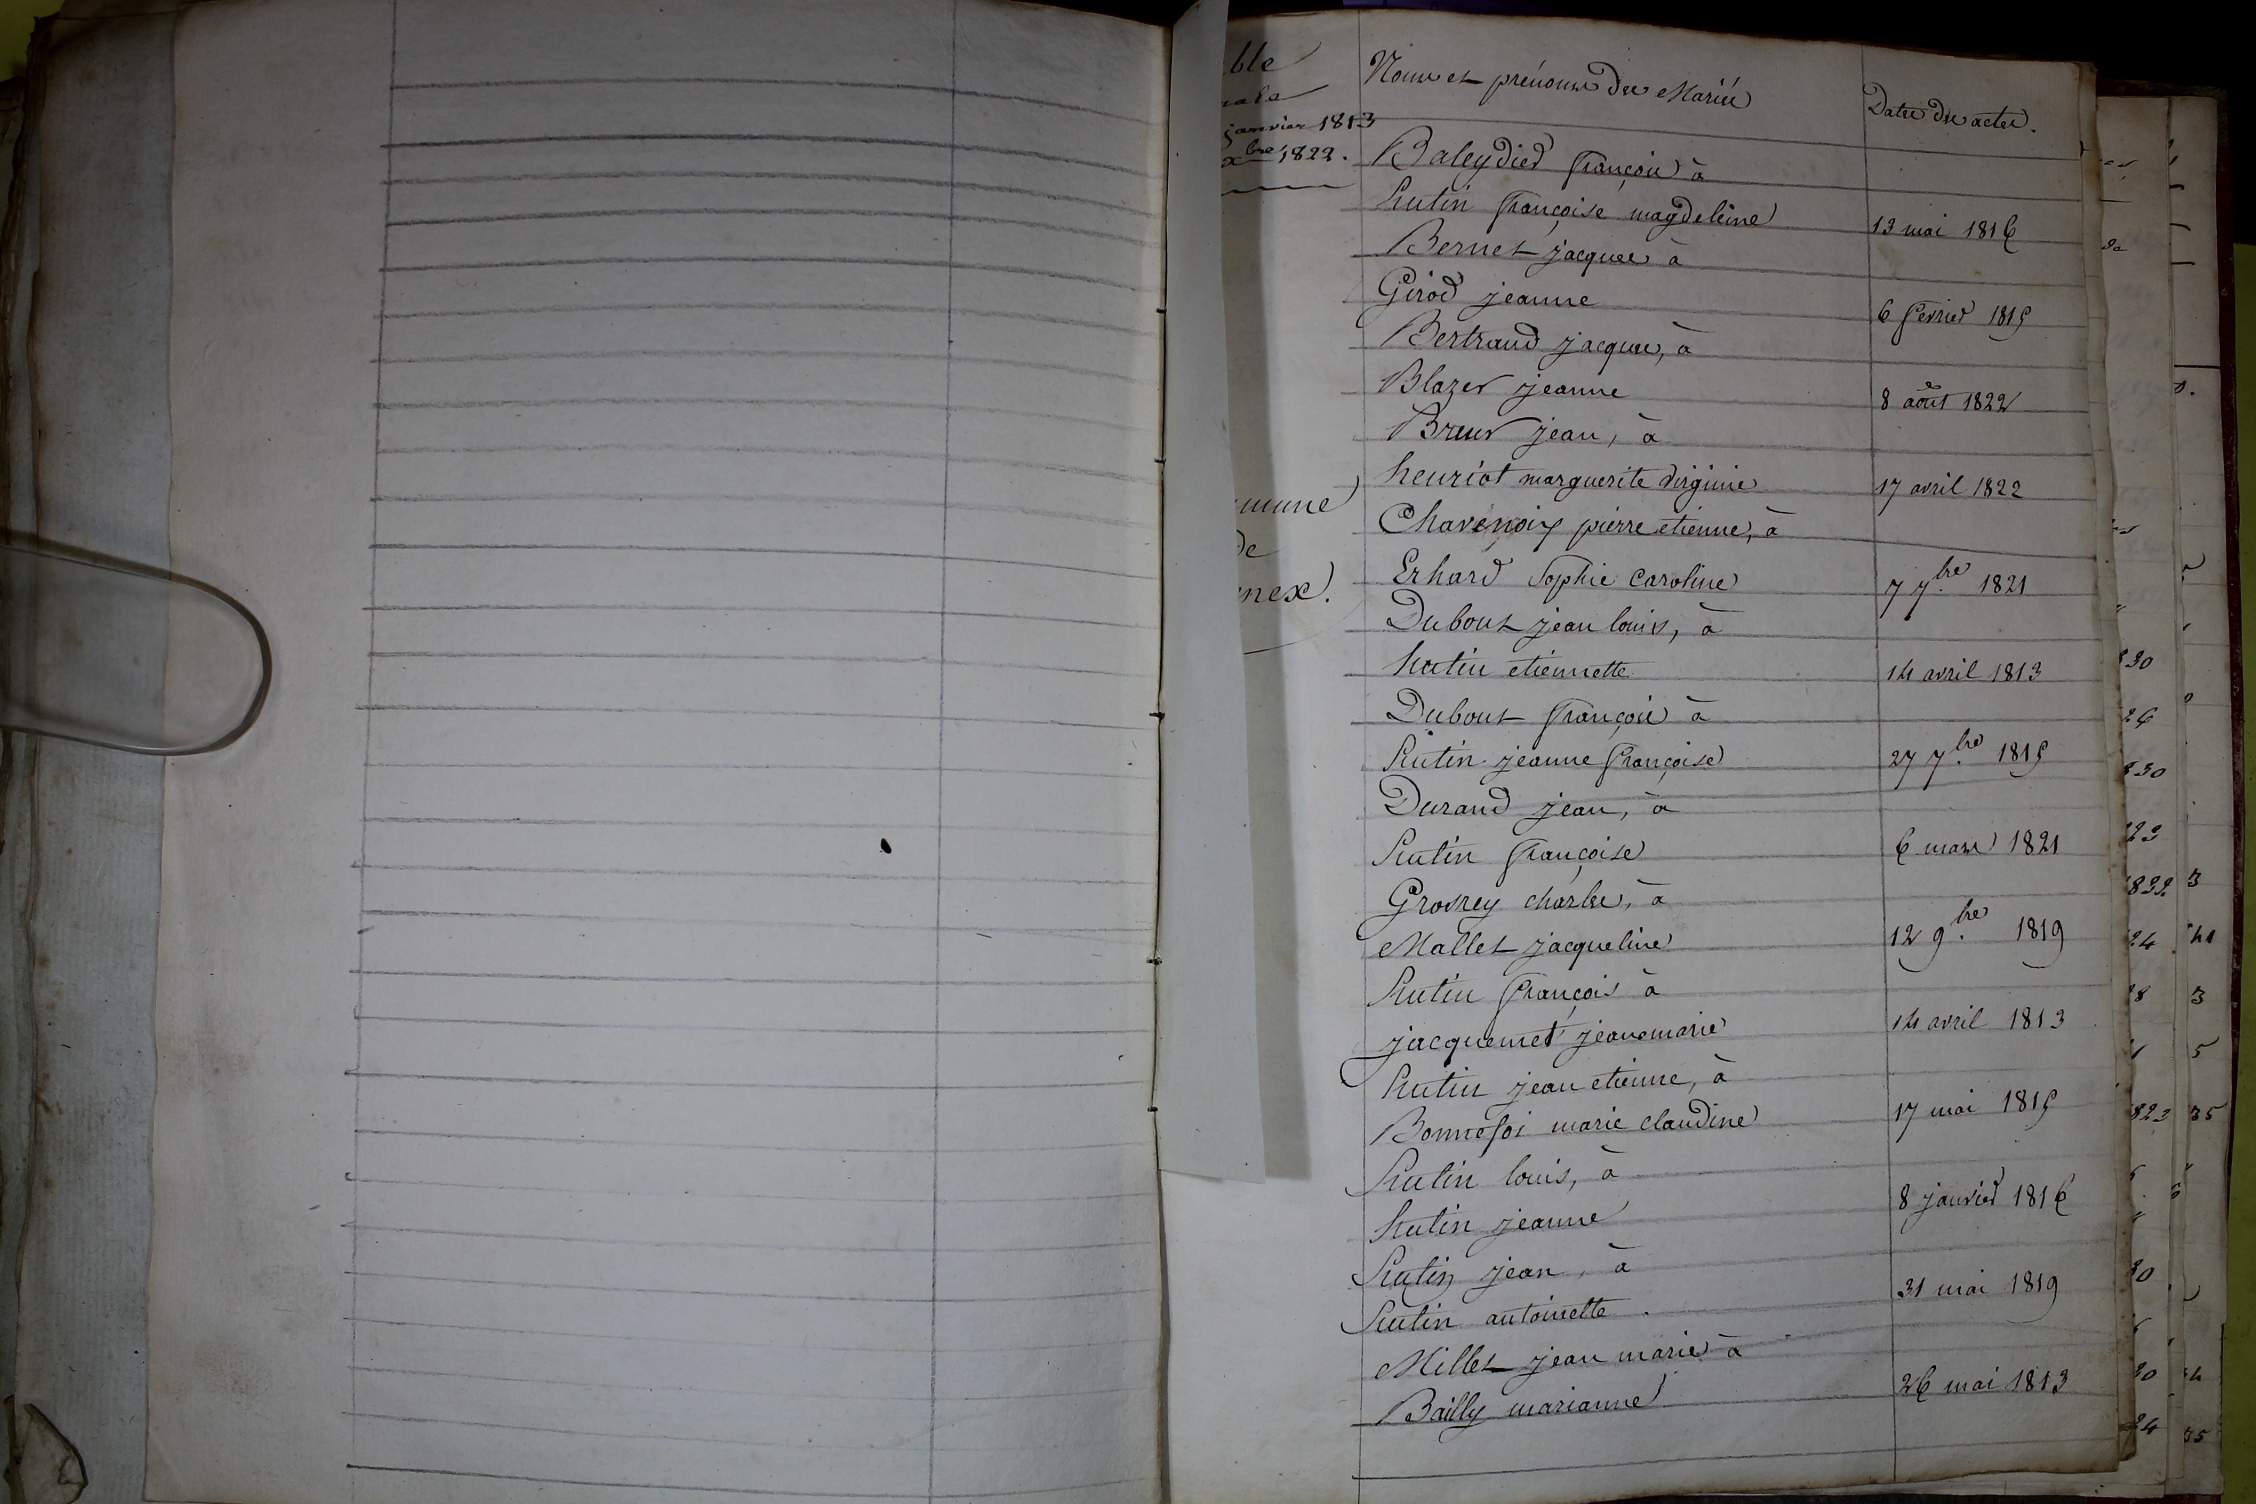 ble
nale
janvier 1813
xbre 1822.
mune
de
nex.
Noms et prénoms des Mariés
Dates des actes.
Baleydier françois à
hutin françoise magdeleine 13 mai 1816
Bernet jacques à
Girod jeanne 6 fevrier 1815
Bertrand jacques, à
Blazer jeanne 8 août 1822
Breur jean, à
henriot marguerite virginie 17 avril 1822
Chavenoix pierre etienne, à
Erhard Sophie Caroline 7 7.bre 1821
Dubout jean louis, à
hutin etiennette 14 avril 1813
Dubout françois à
hutin jeanne françoise 27 7.bre 1815
Durand jean, à
hutin françoise 6 mars 1821
Grosrey charles, à
Mallet jacqueline 12 9.bre 1819
hutin françois à
jacquemet jeanemarie 14 avril 1813
hutin jean etienne, à
Bonnefoi marie claudine 17 mai 1815
hutin louis, à
hutin jeanne 8 janvier 1816
hutin jean, à
hutin antoinette. 31 mai 1819
Millet jean marie à
Bailly marianne 26 mai 1813